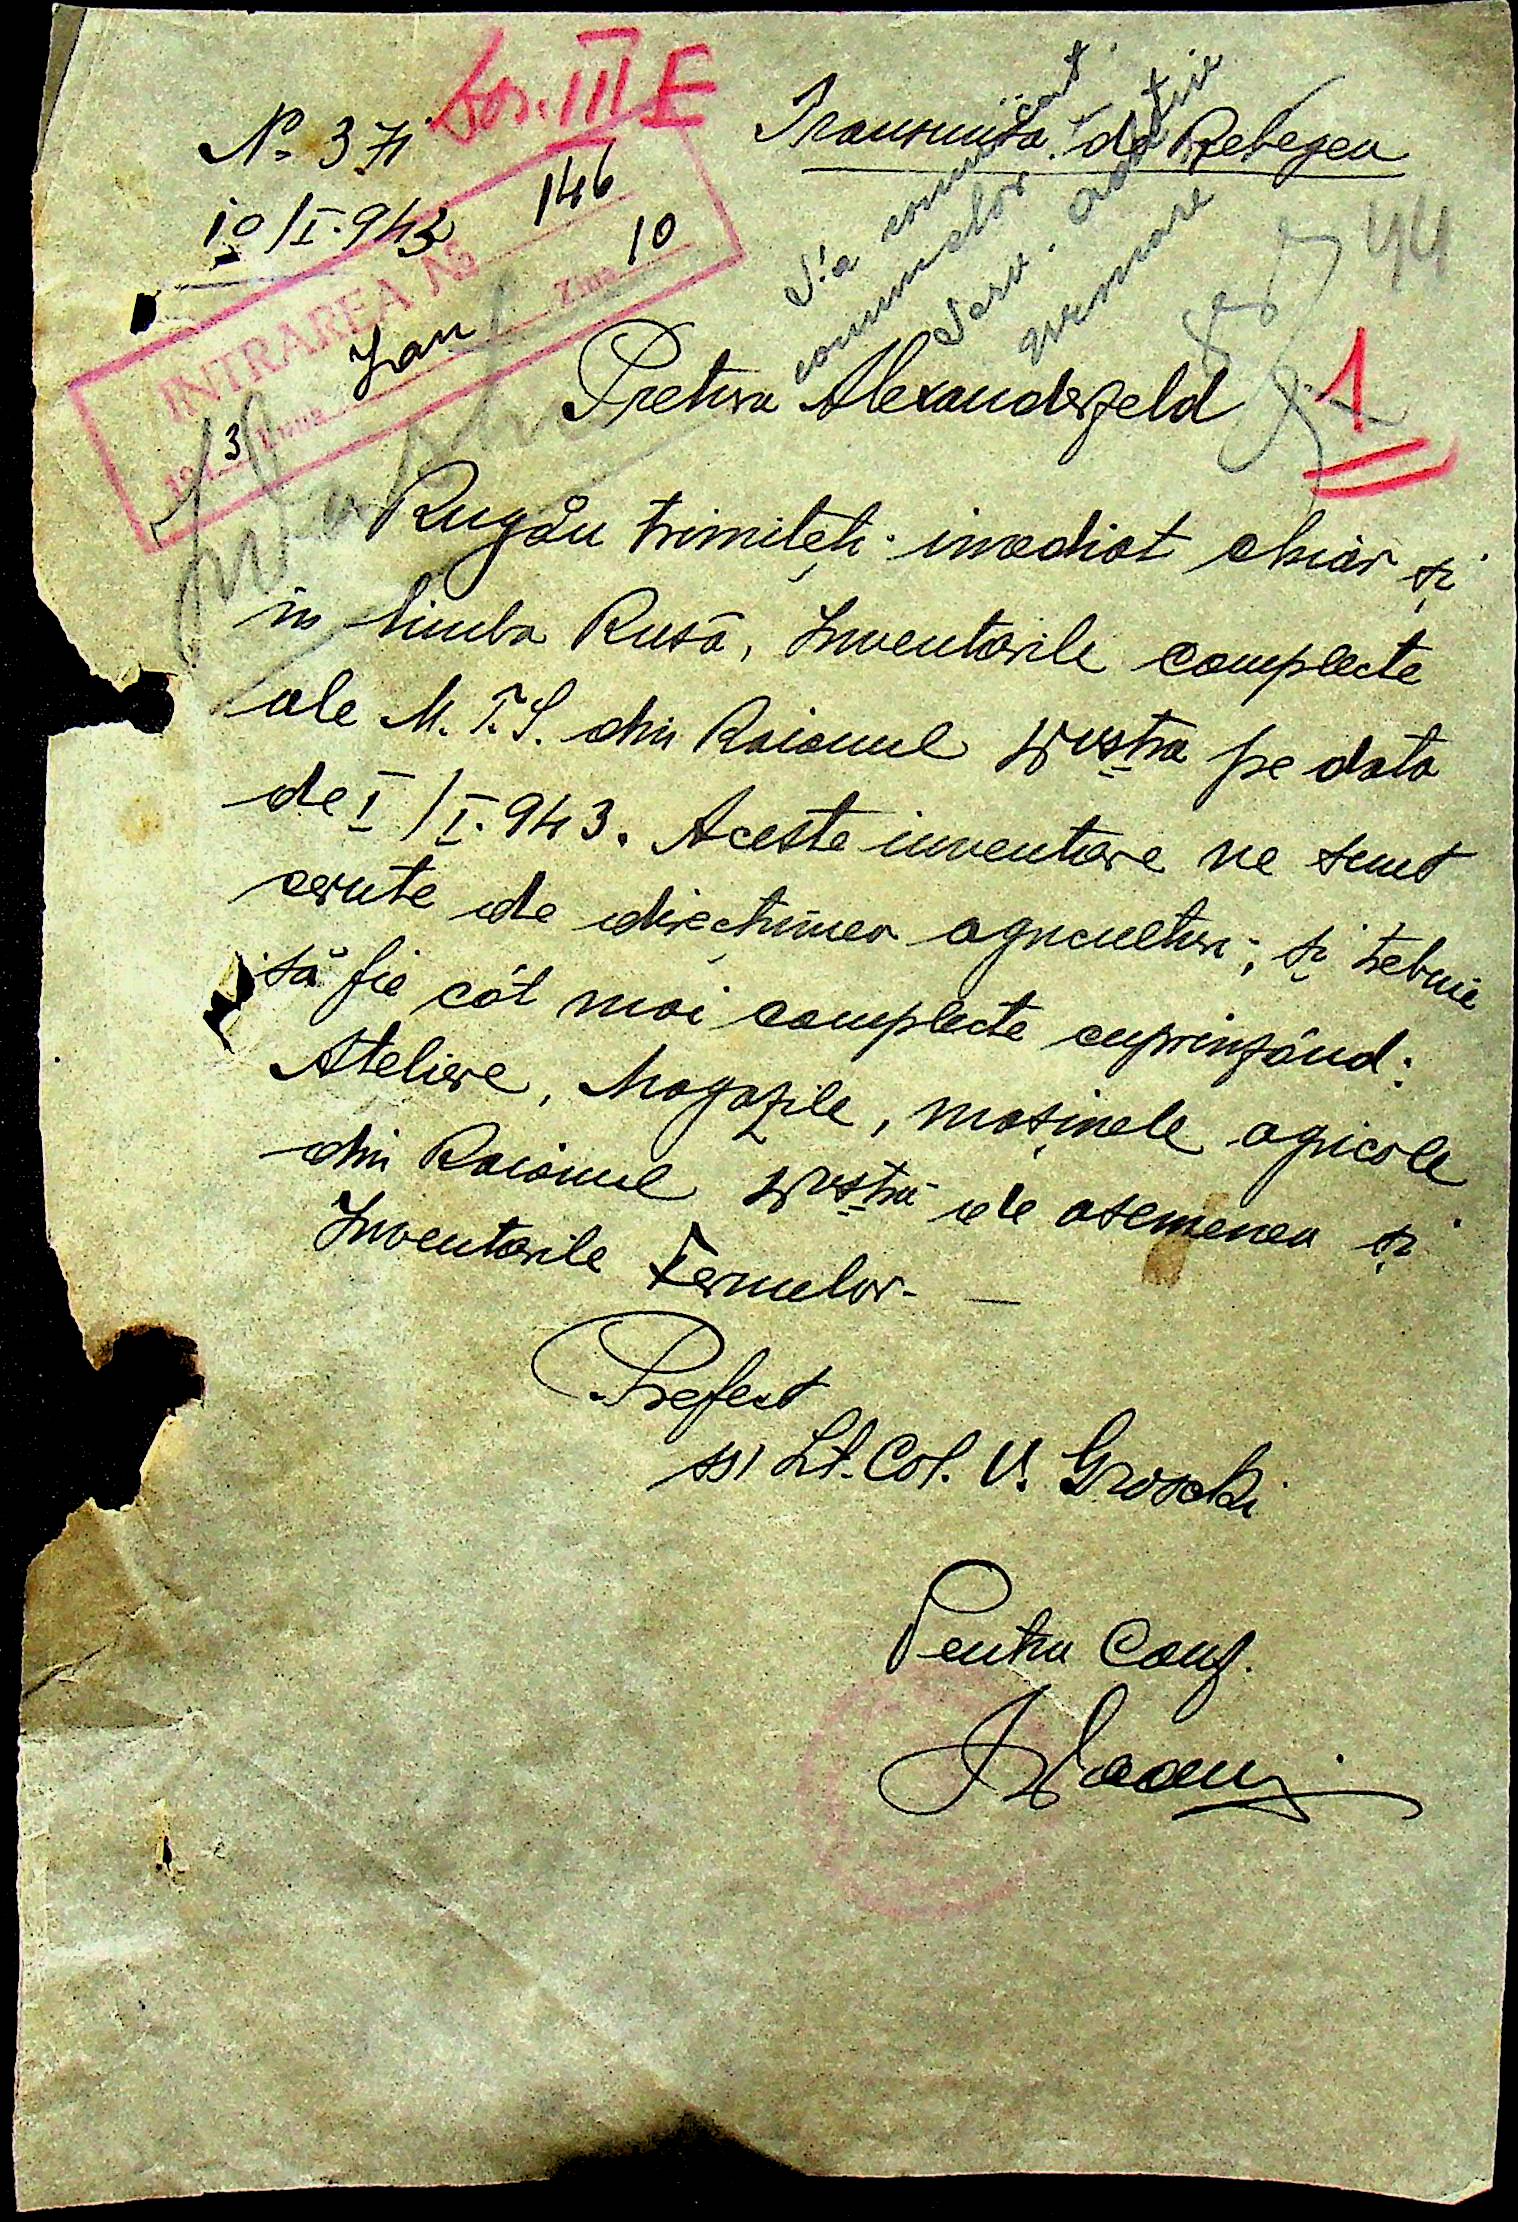 Dos. III E
No. 371
10/I.943
Transmisă de Rebegea
S'a comunicat
comunelor
Serv.
44
INTRAREA No 146
194 3 Luna Ian Ziua 10
Pretura Alexanderfeld
1
Rugău trimiteți imediat chiar și
în limba Rusă, Inventarile complecte
ale M.T.S. din Raionul Vostru pe data
de I/I.943. Aceste inventare ne sunt
cerute de direcțiunea agriculturi; și trebuie
să fie cât mai complecte cuprinzând:
Ateliere, Magazile, mașinele agricole
din Raionul Vostru de asemenea și
Inventarile Fermelor. —
Prefect
ss/ Lt. Col. V. Groschi
Pentru Conf.